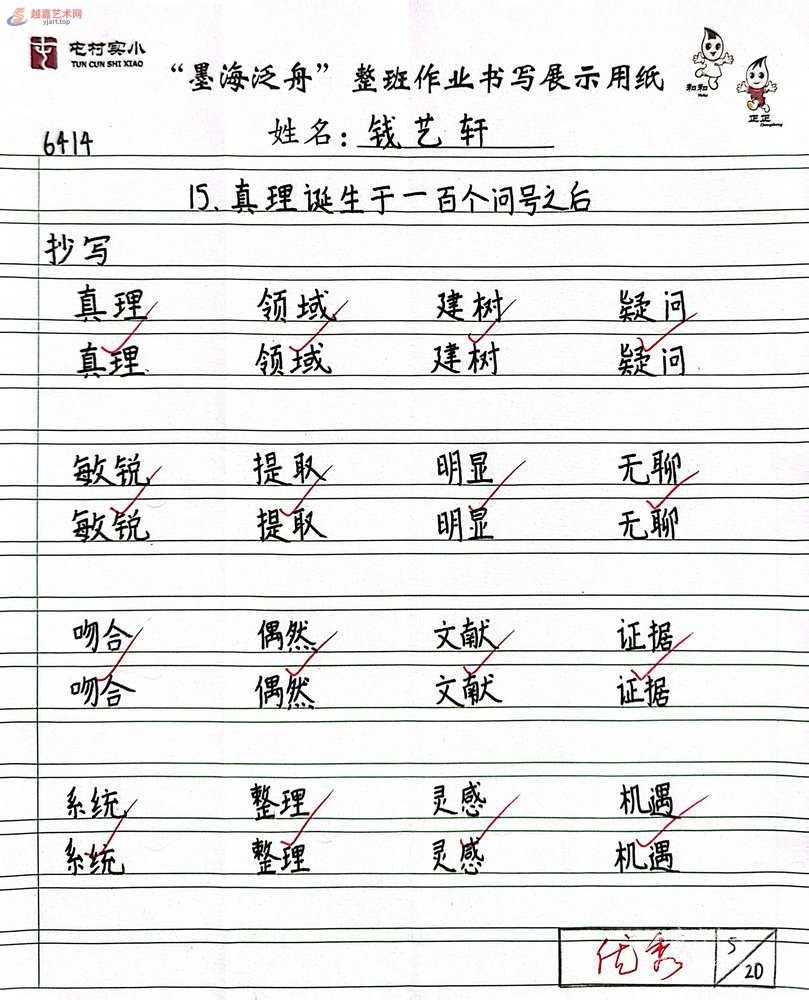 越嘉艺术网
yjart.top
屯村实小
TUN CUN SHI XIAO
“墨海泛舟”整班作业书写展示用纸
和和
正正
6414
姓名：钱艺轩
15、真理诞生于一百个问号之后
抄写
真理 领域 建树 疑问
真理 领域 建树 疑问
敏锐 提取 明显 无聊
敏锐 提取 明显 无聊
吻合 偶然 文献 证据
吻合 偶然 文献 证据
系统 整理 灵感 机遇
系统 整理 灵感 机遇
优秀 5/20